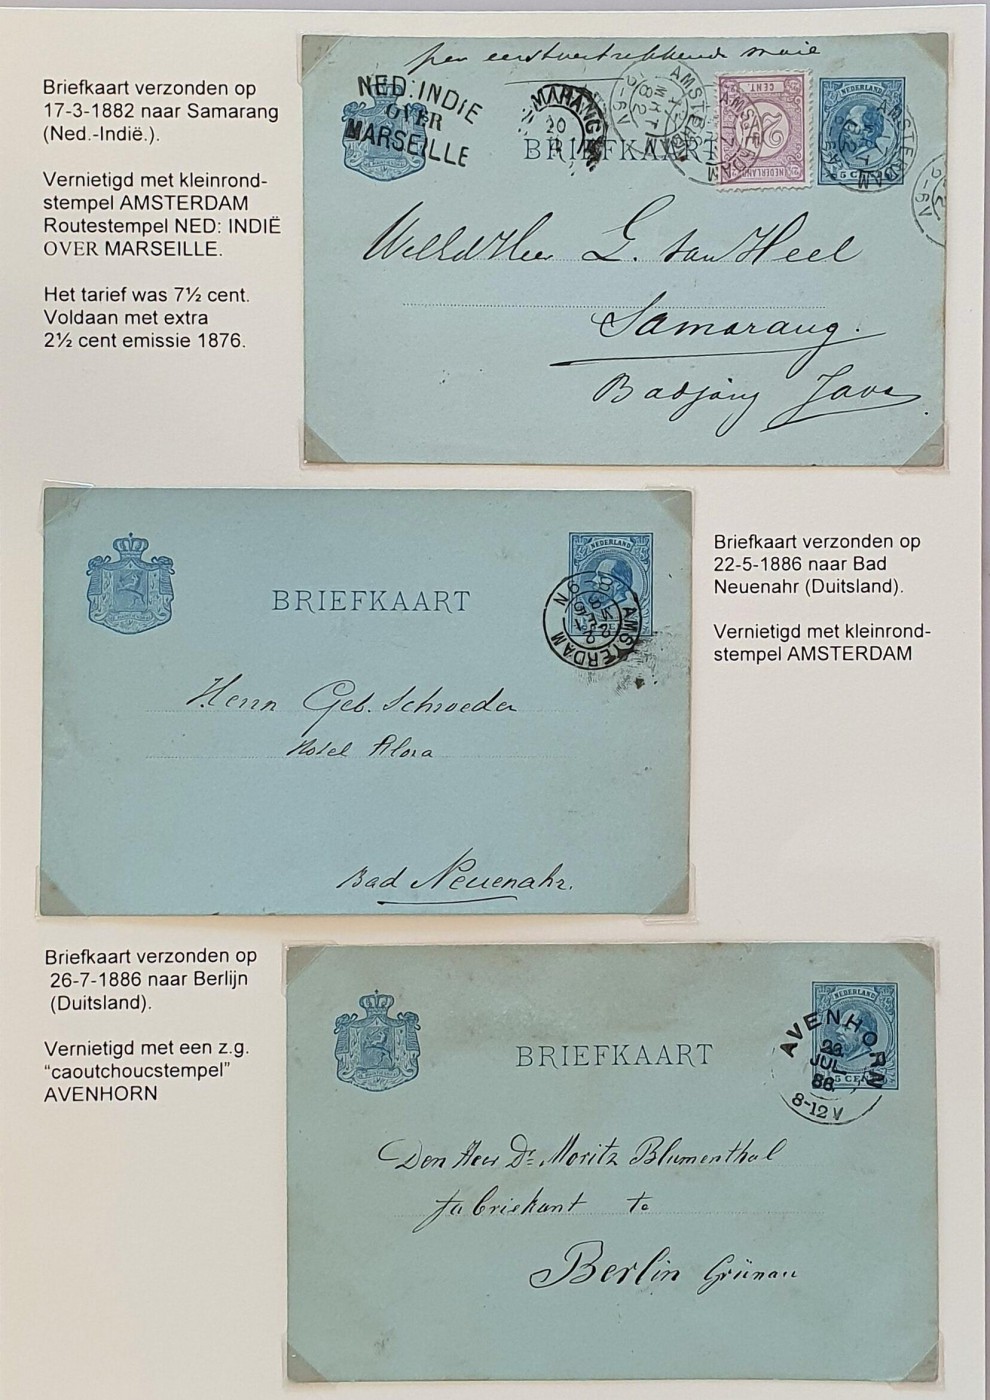 Briefkaart verzonden op
17-3-1882 naar Samarang
(Ned.-Indië.).
Vernietigd met kleinrond-
stempel AMSTERDAM
Routestempel NED: INDIË
OVER MARSEILLE.
Het tarief was 7½ cent.
Voldaan met extra
2½ cent emissie 1876.
per eerstvertrekkende maie
NED: INDIE
OVER
MARSEILLE
AMSTERDAM
NEDERLAND
2½
CENT
AMSTERDAM
BRIEFKAART
5 C
G. van Heel
Samarang.
Java
Briefkaart verzonden op
22-5-1886 naar Bad
Neuenahr (Duitsland).
Vernietigd met kleinrond-
stempel AMSTERDAM
NEDERLAND
BRIEFKAART
AMSTERDAM
Herrn Geb. Schroeder
Hotel Flora
Bad Neuenahr.
Briefkaart verzonden op
26-7-1886 naar Berlijn
(Duitsland).
Vernietigd met een z.g.
“caoutchoucstempel”
AVENHORN
NEDERLAND
BRIEFKAART
AVENHORN
26
JUL
86.
8-12V
5 CENT
Den Heer Dr. Moritz Blumenthal
fabriekant te
Berlin Grünau